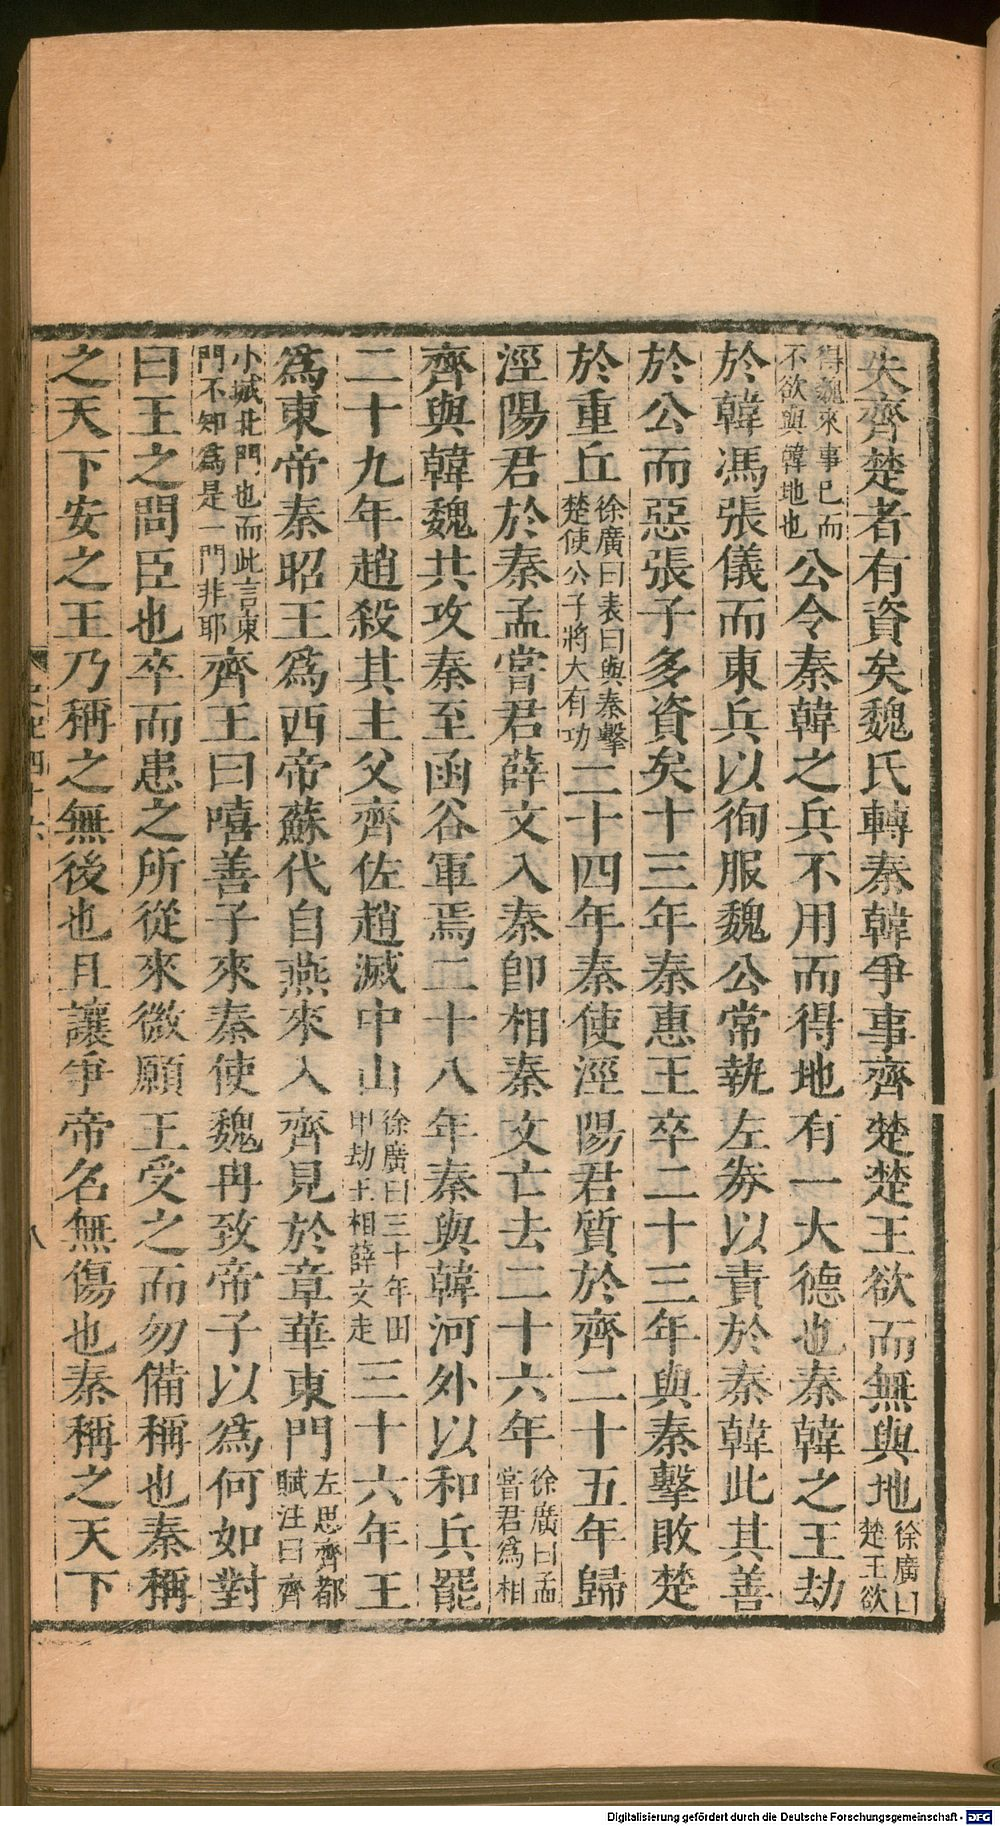 失齊楚者有資矣魏氏轉秦韓爭事齊楚楚王欲而無與地徐廣曰楚王欲
得魏來事巳而不欲與韓地也公令秦韓之兵不用而得地有一大德也秦韓之王劫
於韓馮張儀而東兵以徇服魏公常執左券以責於秦韓此其善
於公而惡張子多資矣十三年秦惠王卒二十三年與秦擊敗楚
於重丘徐廣曰表曰與秦擊楚使公子將大有功二十四年秦使涇陽君質於齊二十五年歸
涇陽君於秦孟嘗君薛文入秦卽相秦文亡去二十六年徐廣曰孟嘗君爲相
齊與韓魏共攻秦至函谷軍焉二十八年秦與韓河外以和兵罷
二十九年趙殺其主父齊佐趙滅中山徐廣曰三十年田甲劫王相薛文走三十六年王
爲東帝秦昭王爲西帝蘇代自燕來入齊見於章華東門左思齊都賦注曰齊
小城北門也而此言東門不知爲是一門非耶齊王曰嘻善子來秦使魏冉致帝子以爲何如對
曰王之問臣也卒而患之所從來微願王受之而勿備稱也秦稱
之天下安之王乃稱之無後也且讓爭帝名無傷也秦稱之天下
八
Digitalisierung gefördert durch die Deutsche Forschungsgemeinschaft - DFG